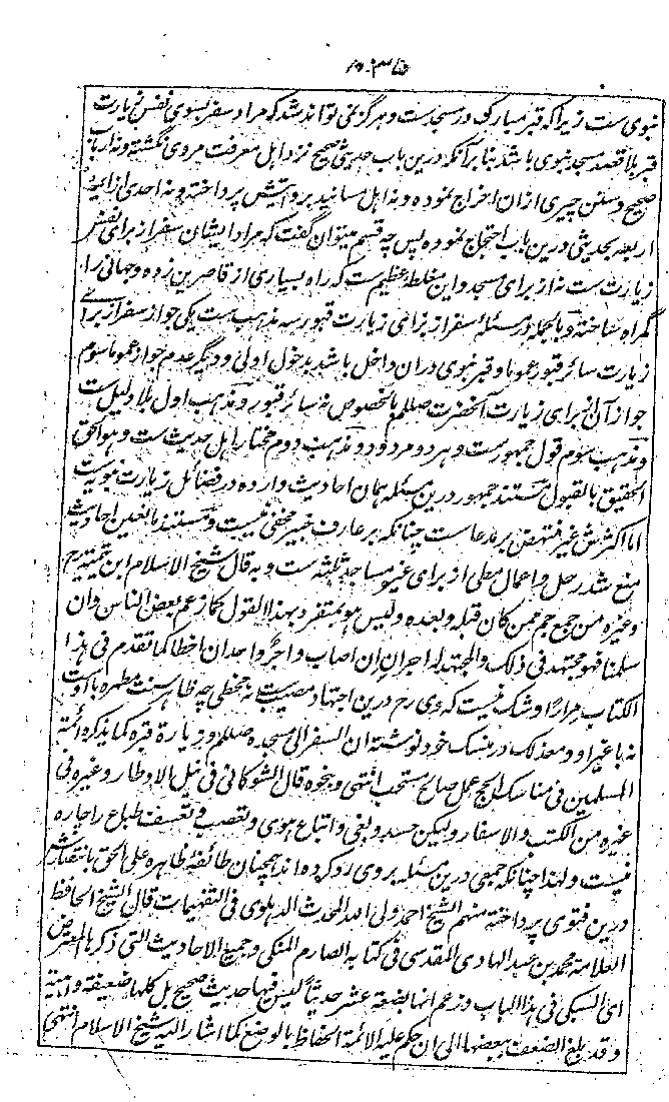 ۳۵
نبوی ست زیرا که قبر مبارک در مسجدست و هرگز نمی تواند شد که مراد سفر بسوی نفس زیارت
قبر بلا قصد مسجد نبوی باشد بنا بر آنکه درین باب حدیثی صحیح نزد اہل معرفت مروی نگشته و نه ارباب
صحیح و سنن چیزی ازان اخراج نموده و نه اہل مسانید بروایتش پرداخته و نه احدی از ایمهٔ
اربعه بحدیثی درین باب احتجاج نموده پس چه قسم میتوان گفت که مراد ایشان سفر از برای نفس
زیارت ست نه از برای مسجد و این مغلطهٔ عظیم ست که راه بسیاری از قاصرین زده و جهانی را
گمراه ساخته و بالجمله در مسئلهٔ سفر از برای زیارت قبور سه مذہب ست یکی جواز سفر از برای
زیارت سائر قبور عموما و قبر نبوی دران داخل باشد بدخول اولی و دیگر عدم جواز عموما سوم
جواز آن از برای زیارت آنحضرت صللم بالخصوص نه سائر قبور و مذہب اول بلا دلیل ست
و مذہب سوم قول جمہورست و ہر دو مردود و مذہب دوم مختار اہل حدیث ست و ہو الحق
الحقیق بالقبول مستند جمہور درین مسئله ہمان احادیث وارده در فضائل زیارت نبویہ ست
اما اکثرش غیر منتهض بر مدعاست چنانکه بر عارف خبیر مخفی نیست و مستند مانعین احادیث
منع شد رحل و اعمال مطی از برای غیر مساجد ثلثه ست و به قال شیخ الاسلام ابن تیمیه رح
وغیره من جمع جم ممن کان قبله و بعده ولیس ہو بمتفرد بہذا القول کما زعم بعض الناس وان
سلمنا فہو مجتہد فی ذلک والمجتہد له اجران ان اصاب واجر واحد ان اخطا کما تقدم فی ہذا
الکتاب مرارًا و شک نیست که وی رح درین اجتہاد مصیب ست نه مخطی چه ظاہر سنت مطہره با اوست
نه با غیر او و معذلک در منسک خود نوشته ان السفر الی مسجده صللم و زیارة قبره کما یذکره ائمة
المسلمین فی مناسک الحج عمل صالح مستحب انتهی و بنحوه قال الشوکانی فی نیل الاوطار وغیره فی
غیره من الکتب والاسفار ولیکن حسد و بغی و اتباع ہوی و تعصب و تعسف طباع را چاره
نیست و لہذا چنانکه جمعی درین مسئله بروی رد کرده اند ہمچنان طائفهٔ ظاہره علی الحق بانتصارش
درین فتوی پرداخته منہم الشیخ احمد ولی الله المحدث الدہلوی فی التفہیمات قال الشیخ الحافظ
العلامة محمد بن عبد الہادی المقدسی فی کتابه الصارم المنکی و جمیع الاحادیث التی ذکرہا المعترض
ای السبکی فی ہذا الباب و زعم انہا بضعة عشر حدیثاً لیس فیہا حدیث صحیح بل کلہا ضعیفة واہیة
وقد بلغ الضعف ببعضہا الی ان حکم علیه الائمة الحفاظ بالوضع کما اشار الیه شیخ الاسلام انتہی